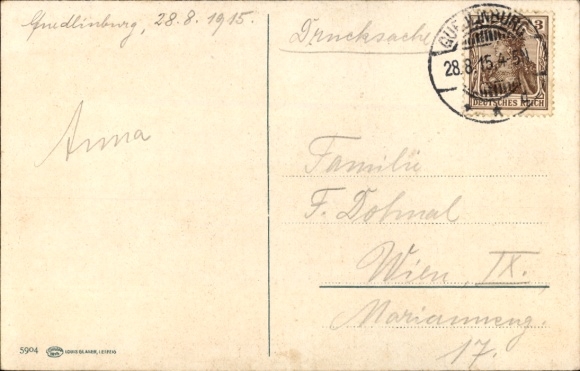 Quedlinburg, 28.8.1915.
Anna
5904 LOUIS GLASER, LEIPZIG
Drucksache
QUEDLINBURG
28.8.15.4-5
3
DEUTSCHES REICH
Familie
F. Dolmal
Wien, IX.
Marianneng.
17.